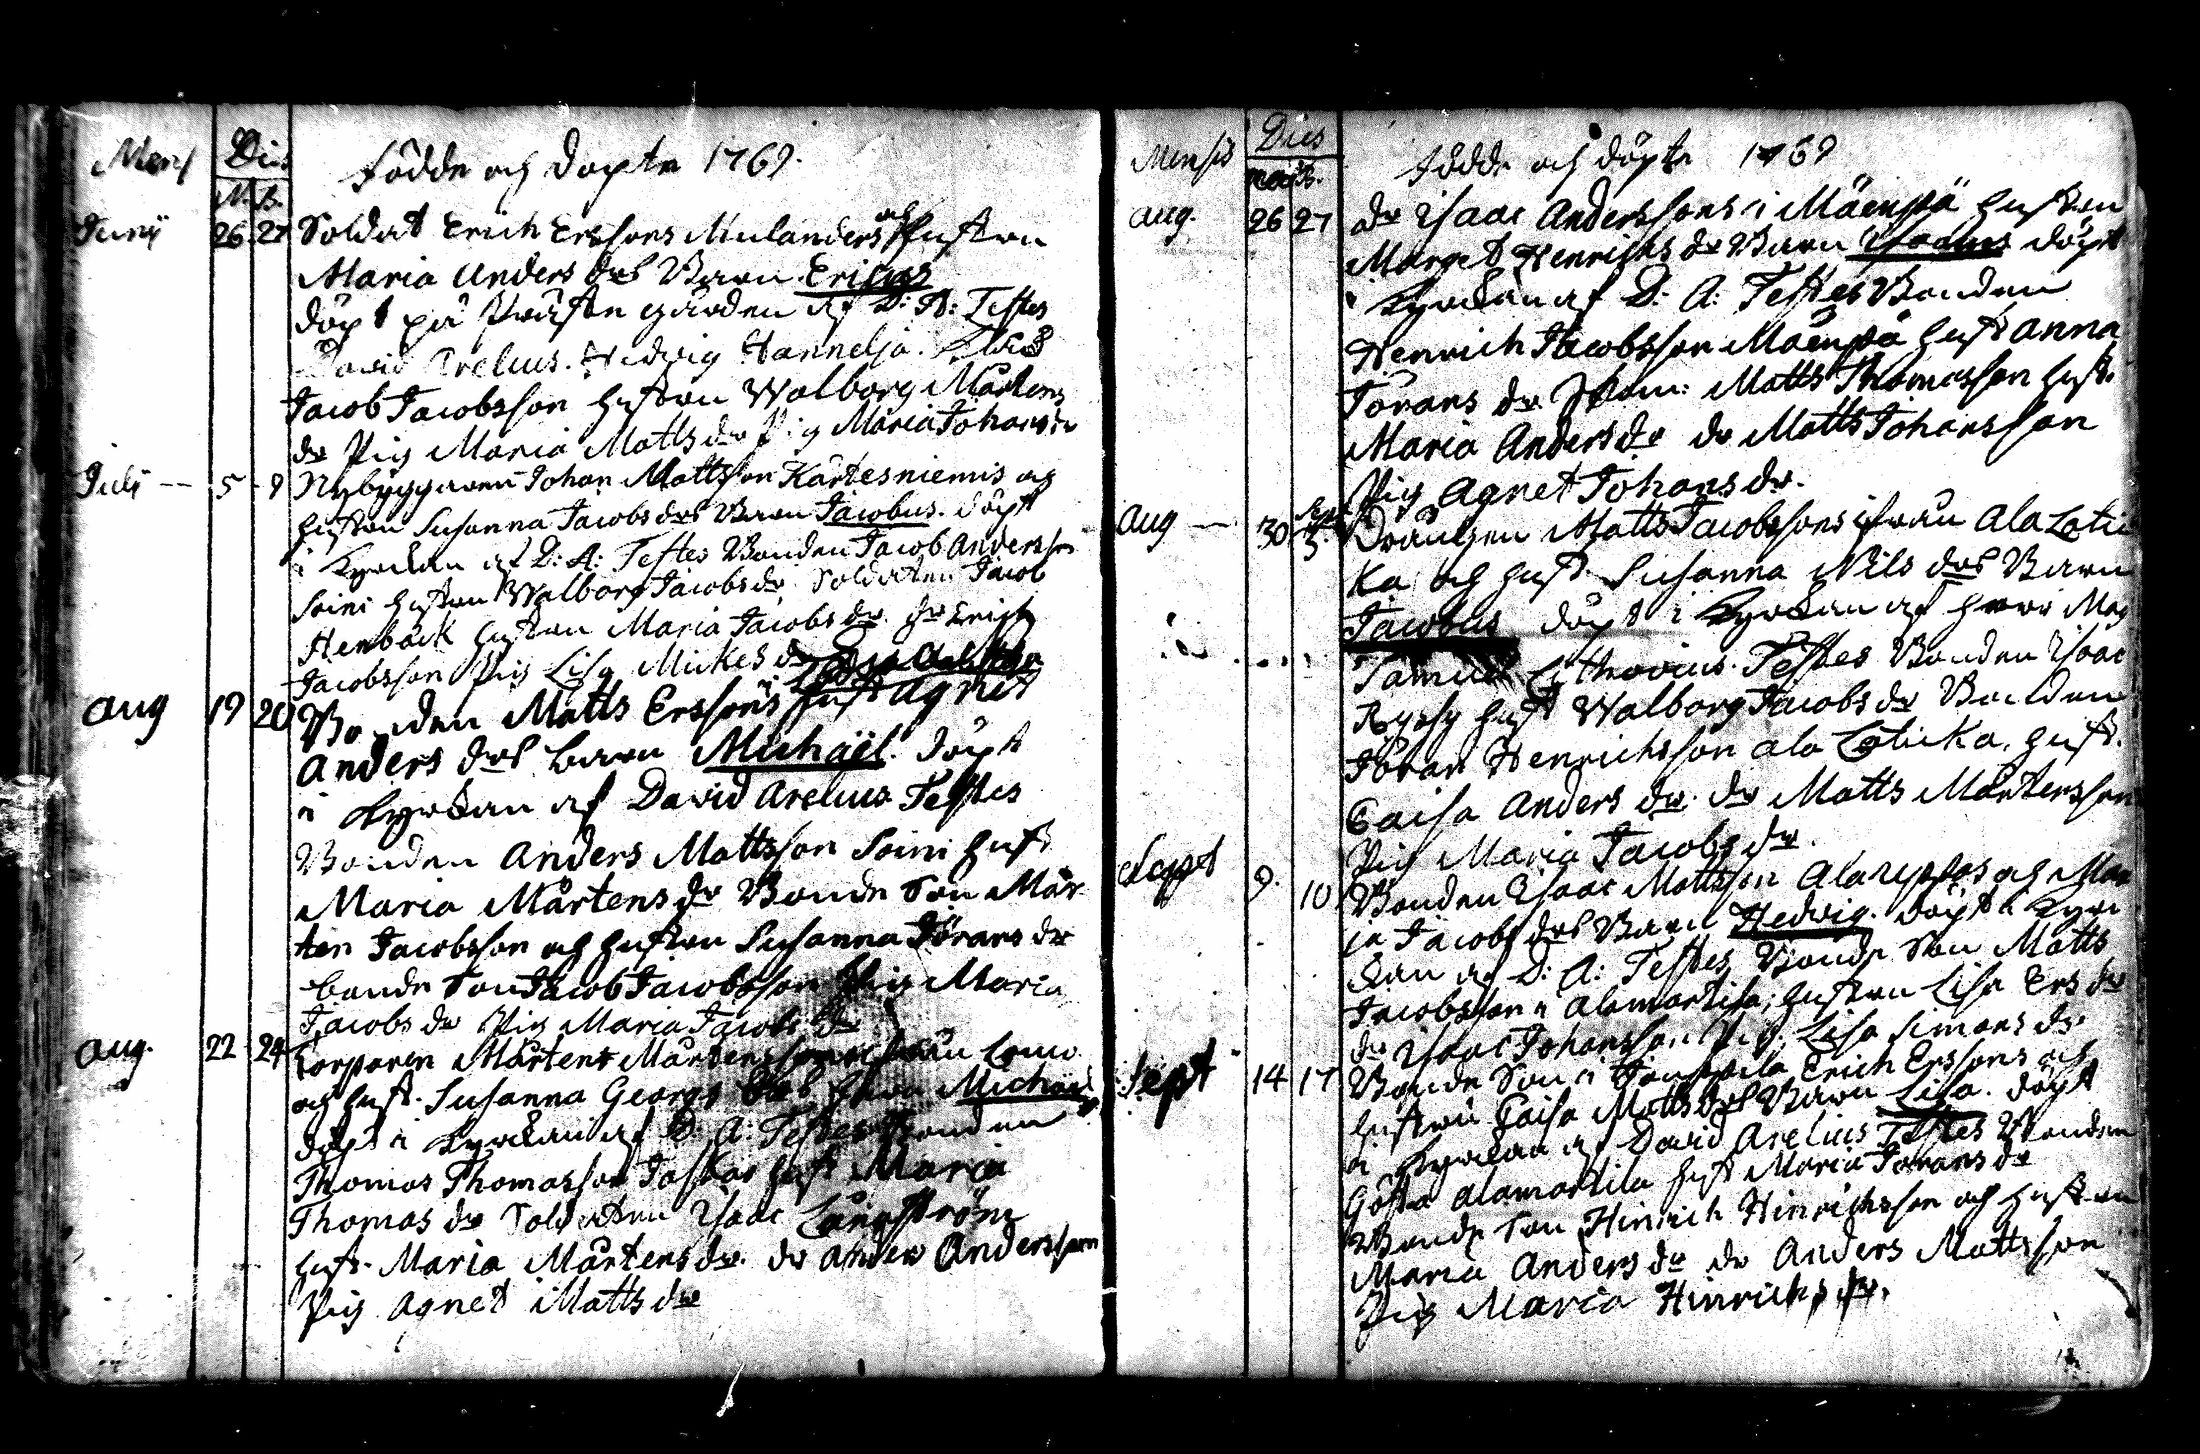 Mens Dies Födde och döpte 1769.
N. B.
Junÿ 26 27 Soldat Erich Erssons Mulanders och hustrun
Maria Anders drs Barn Ericus
döpt på Prästegården af D: A: Testes
David Arelius. Hedwig Hannelja.
Jacob Jacobsson hustrun Walborg Mårtens
dr Pig Maria Matts dr Pig Maria Johans dr
Julÿ -- 5 - 9 Nybyggaren Johan Mattsson Kartesniemis och
hustrun Susanna Jacobs drs Barn Jacobus. döpt
i Kyrckan af D: A: Testes Bonden Jacob Andersson
Soini hustrun Walborg Jacobs dr. Soldaten Jacob
Henbäck hustrun Maria Jacobs dr. dr Erich
Jacobsson Pig Lisa Mickels dr
Aug 19 20 Bonden Matts Erssons hust Agnet
Anders drs barn Michaël. döpt
i Kyrckan af David Arelius Testes
Bonden Anders Mattsson Soini hust
Maria Mårtens dr Bonde Son Mår-
ten Jacobsson och hustrun Susanna Jörans dr
bonde Son Jacob Jacobsson Pig Maria
Jacobs dr Pig Maria Jacobs dr
Aug. 22 24 Torparen Mårtens Mårtenssons ifrån
och hust. Susanna Georgs drs barn Michaël
döpt i Kyrckan af D: A: Testes Bonden
Thomas Thomasson hust Maria
Thomas dr Soldaten Isaac Långström
hust. Maria Mårtens dr. dr Anders Andersson
Pig Agnet Matts dr
Mensis Dies Födde och döpte 1769
Aug. 26 27 dr Isaac Anderssons i Mäenpä hustrun
Marget Henrichs dr Barn döpt
i Kyrckan af D: A: Testes Bonden
Henrich Jacobsson Mäenpä hust Anna
Jörans dr Matts Thomasson hust.
Maria Anders dr dr Matts Johansson
Pig Agnet Johans dr.
Aug -- 30 Sept 3. Drängen Matts Jacobssons ifrån Ala Lotic
ka och hust. Susanna Nils drs Barn
Jacobus döpt i Kyrckan af herr Mag
Samuel Lithovius. Testes Bonden Isaac
Ryssy hust Walborg Jacobs dr Bonden
Jöran Henrichsson ala Loticka, hust.
Caisa Anders dr. dr Matts Mårtensson
Pig Maria Jacobs dr.
Sept 9. 10 Bonden Isaac Mattsson och Mar
ia Jacobs drs Barn Hedwig. döpt i Kyrc
kan af D: A: Testes Bonde Son Matts
Jacobsson i Alamartila, hustrun Lisa Ers dr
dr Isaac Johansson Pig. Lisa Simons dr.
Sept 14 17 Bonde Son i Erich Erssons och
hustrun Caisa Matts drs Barn Lisa. döpt
i Kyrckan af David Arelius Testes Bonden
Gösta Alamartila hust Maria Jörans dr
Bonde Son Hinrich Hinrichsson och hustrun
Maria Anders dr dr Anders Mattsson
Pig Maria Hinrichs dr.